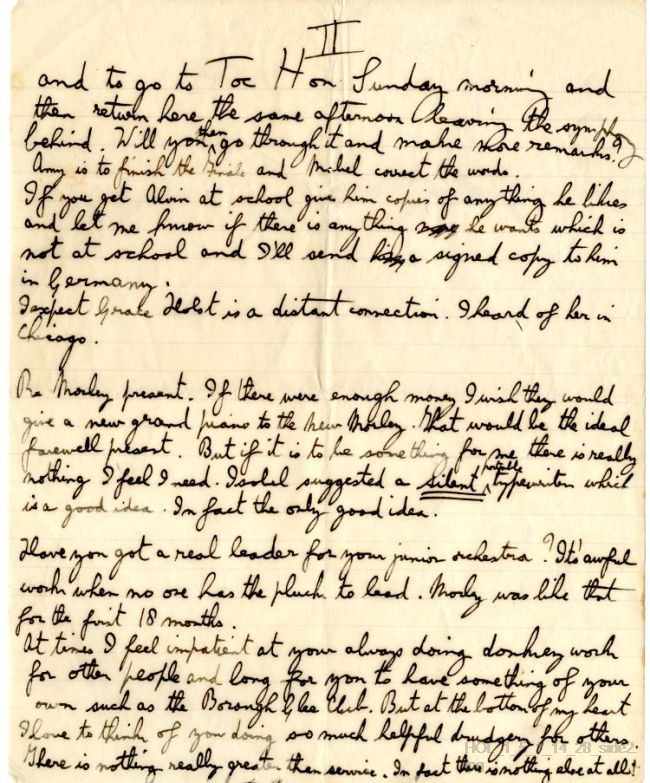 II
and to go to Toc H on Sunday morning and
then return here the same afternoon leaving the symphony
behind. Will you then go through it and make more remarks?
Amy is to finish the Finale and Mabel correct the words.
If you get Alvin at school give him copies of anything he likes
and let me know if there is anything he wants which is
not at school and I'll send a signed copy to him
in Germany.
I expect Grace Holst is a distant connection. I heard of her in
Chicago.
Re Morley present. If there were enough money I wish they would
give a new grand piano to the new Morley. That would be the ideal
farewell present. But if it is to be something for me there is really
nothing I feel I need. Isobel suggested a silent portable typewriter which
is a good idea. In fact the only good idea.
Have you got a real leader for your junior orchestra? It's awful
work when no one has the pluck to lead. Morley was like that
for the first 18 months.
At times I feel impatient at your always doing donkey work
for other people and long for you to have something of your
own such as the Borough Glee Club. But at the bottom of my heart
I love to think of you doing so much helpful drudgery for others.
There is nothing really greater than service. In fact there is nothing else at all!